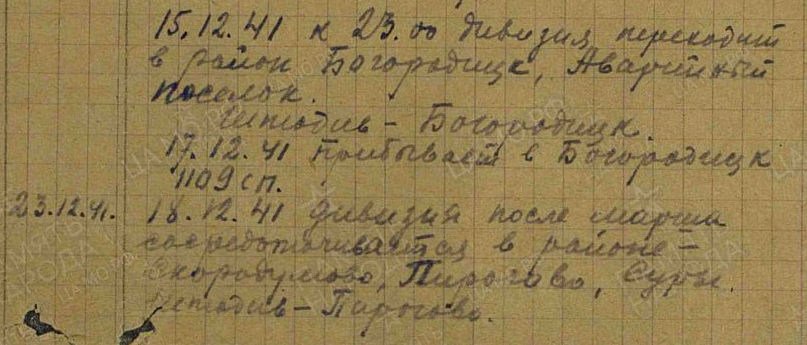 15.12.41 к 23.00 дивизия переходит
в район Богородицк, Аварийный
поселок.
Штадив - Богородицк.
17.12.41 Прибывает в Богородицк
1109 сп.
23.12.41. 18.12.41 дивизия после марша
сосредотачивается в районе -
Скородумово, Пирогово, Суры.
Штадив - Пирогово.